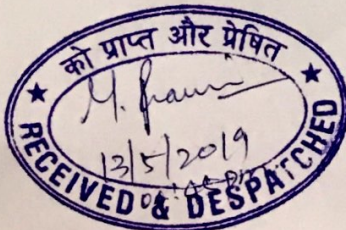 को प्राप्त और प्रेषित
13/5/2019
RECEIVED & DESPATCHED